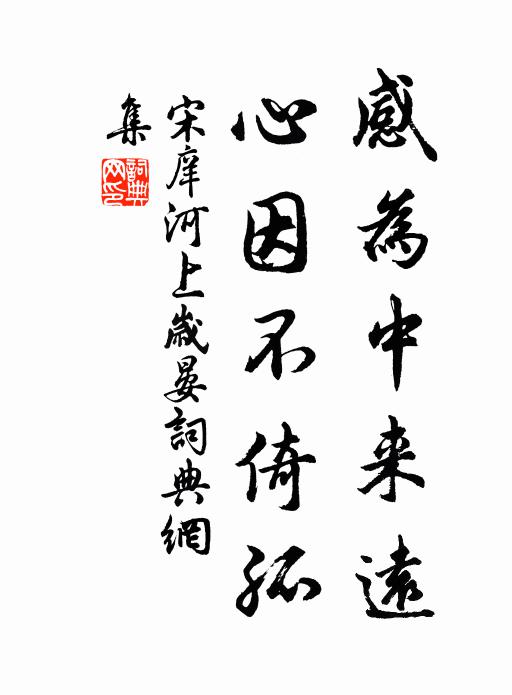 感為中来遠
心因不倚孤
宋庠河上歲晏詞典網
集
詞典網印